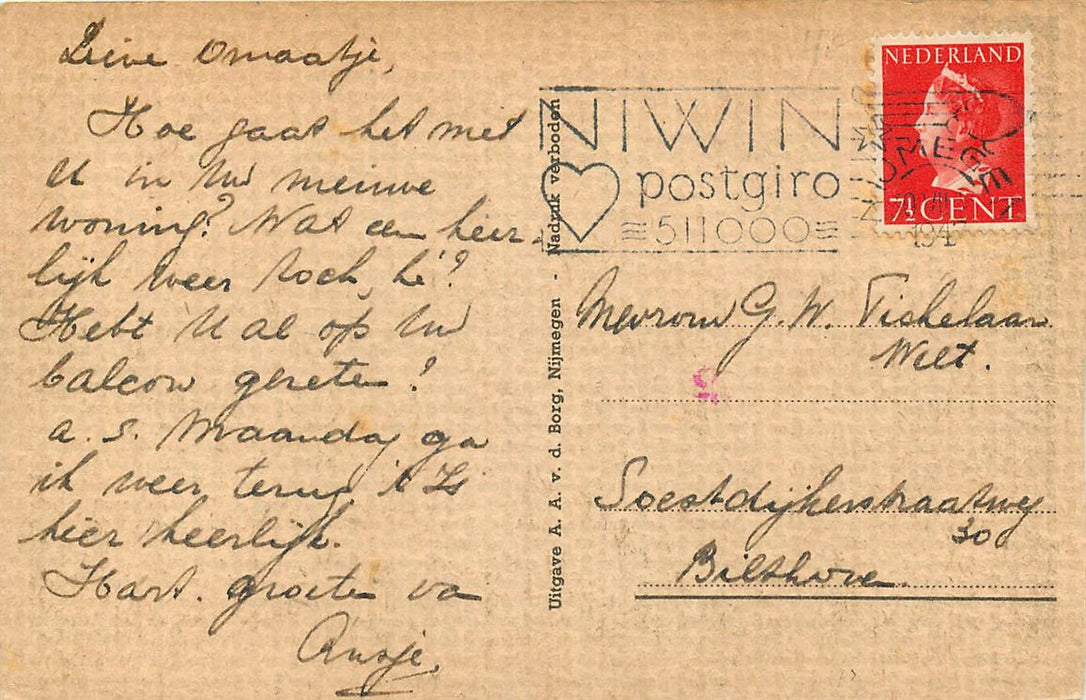 Lieve Omaatje,
Hoe gaat het met
U in Uw nieuwe
woning? Wat een heer-
lijk weer toch, hè?
Hebt U al op Uw
balcon gezeten?
a.s. Maandag ga
ik weer terug. 't Is
hier heerlijk.
Hart. groeten van
Ansje.
Uitgave A. A. v. d. Borg, Nijmegen - Nadruk verboden
NIWIN
postgiro
511000
NIJMEGEN
III
194
NEDERLAND
7½ CENT
Mevrouw G. W. Tichelaar
Welt.
Soestdijkerstraatweg
30
Bilthoven